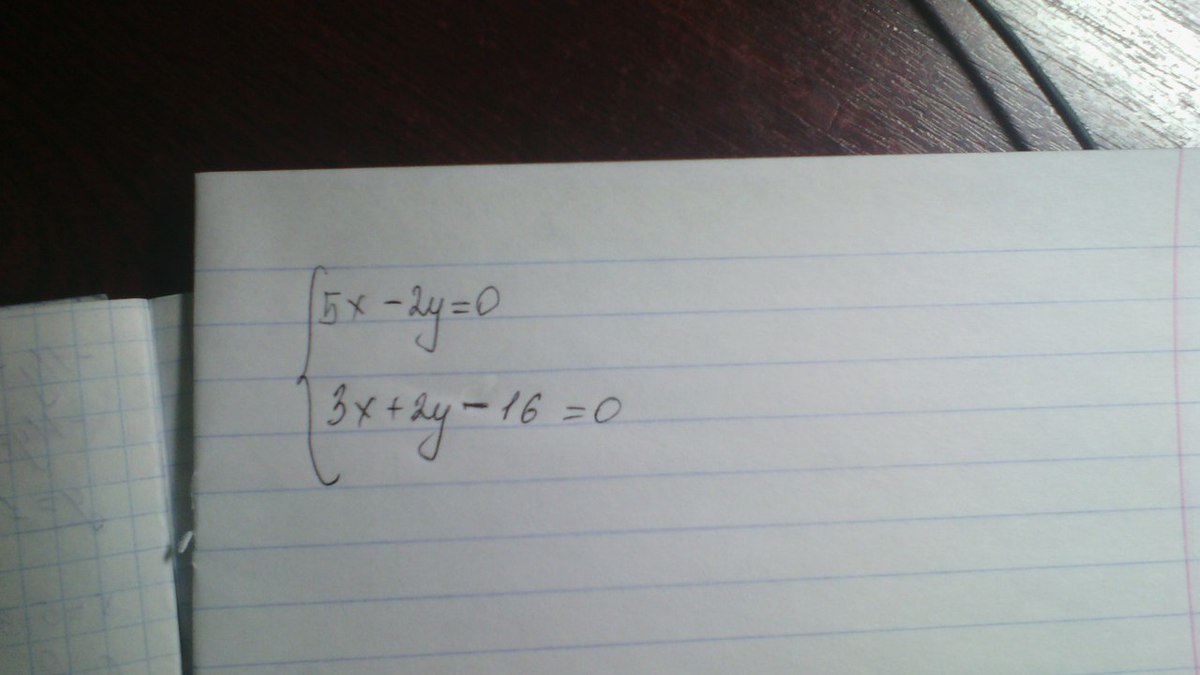 5x - 2y = 0
3x + 2y - 16 = 0